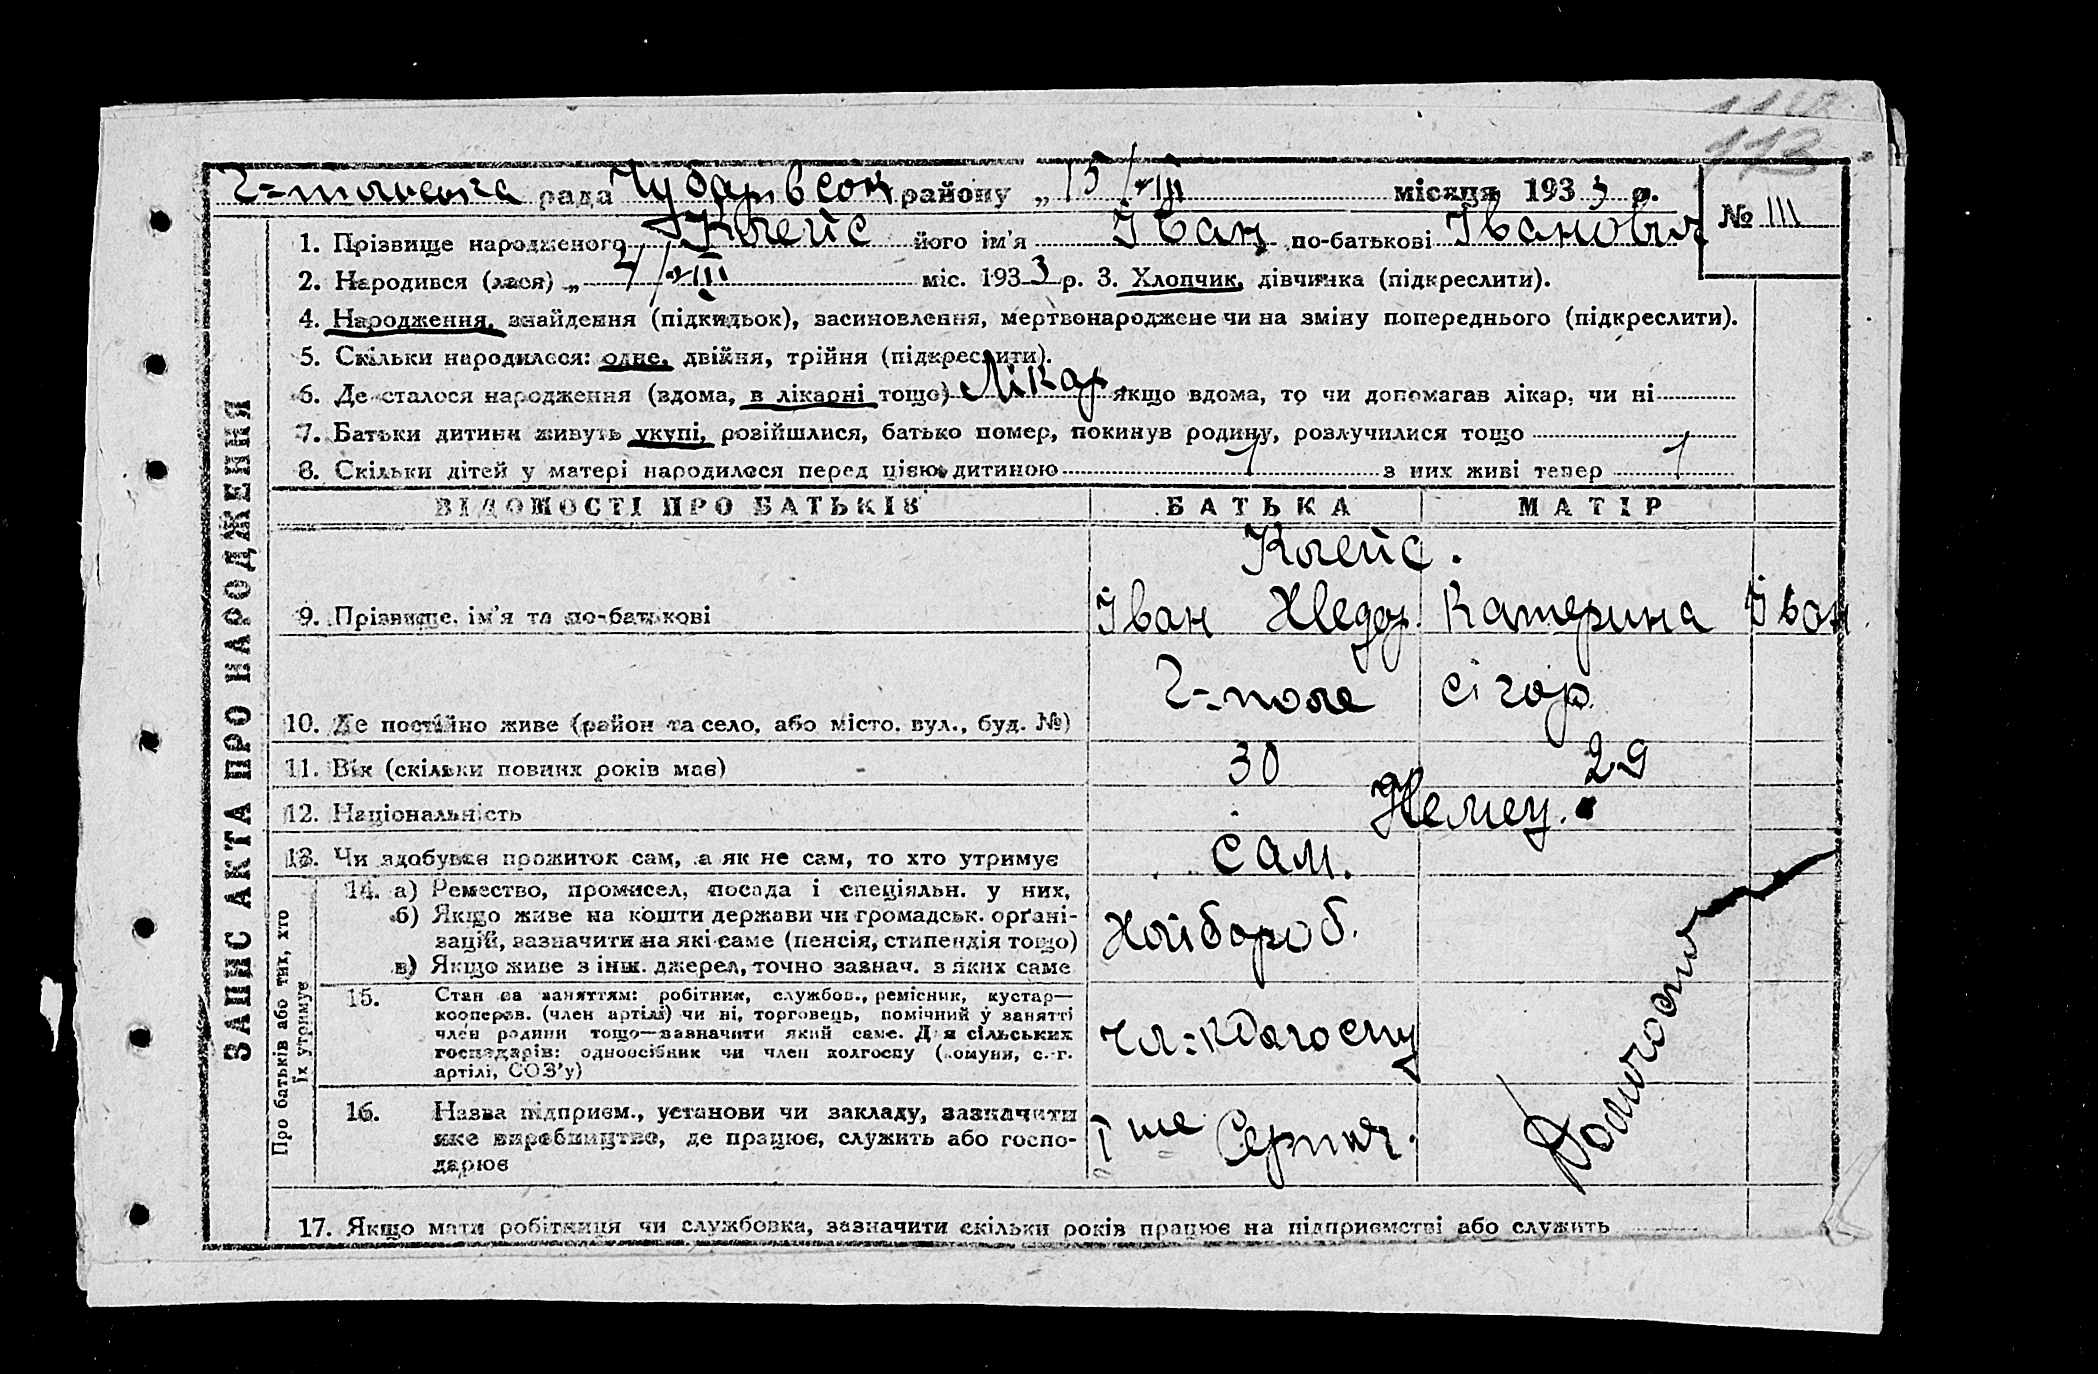 112
Г-пільська рада Чубарівськ району „ 15/VIII місяця 1933 р.
№ 111
1. Прізвище народженого Клейс його ім’я Іван по-батькові Іванович
2. Народився (лася) „ 4/VIII міс. 1933 р. 3. Хлопчик, дівчинка (підкреслити).
4. Народження, знайдення (підкидьок), засиновлення, мертвонароджене чи на зміну попереднього (підкреслити).
5. Скільки народилося: одне, двійня, трійня (підкреслити).
6. Де сталося народження (вдома, в лікарні тощо) Лікар. якщо вдома, то чи допомагав лікар, чи ні
7. Батьки дитини живуть укупі, розійшлися, батько помер, покинув родину, розлучилися тощо
8. Скільки дітей у матері народилося перед цією дитиною 1 з них живі тепер 1
ЗАПИС АКТА ПРО НАРОДЖЕННЯ
ВІДОМОСТІ ПРО БАТЬКІВ БАТЬКА МАТІР
Клейс.
9. Прізвище, ім’я та по-батькові Іван Хведор. Катерина Іван.
10. Де постійно живе (район та село, або місто, вул., буд. №) Г-поле
11. Вік (скільки повних років має) 30 29
12. Національність Немец.
13. Чи здобуває прожиток сам, а як не сам, то хто утримує сам.
Про батьків або тих, хто їх утримує
14. а) Ремество, промисел, посада і спеціяльн. у них,
б) Якщо живе на кошти держави чи громадськ. орґані-
зацій, зазначити на які саме (пенсія, стипендія тощо) Хлібороб.
в) Якщо живе з інш. джерел, точно зазнач. з яких саме
15. Стан за заняттям: робітник, службов., ремісник, кустар—
кооперов. (член артілі) чи ні, торговець, помічний у занятті
член родини тощо—зазначити який саме. Для сільських
господарів: одноосібник чи член колгоспу (комуни, с.-г.
артілі, СОЗ’у)
чл. колгоспу
16. Назва підприєм., установи чи закладу, зазначити
яке виробництво, де працює, служить або госпо-
дарює
1ше Серпня.
Домогосп
17. Якщо мати робітниця чи службовка, зазначити скільки років працює на підприємстві або служить